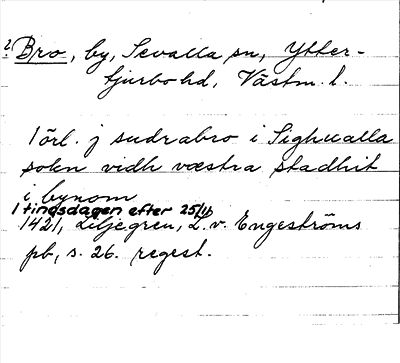 ? Bro, by, Sevalla sn, Ytter-
tjurbo hd, Västm. l.
1 örl. j sudrabro i Sighualla
sokn vidh væstra stadhit
i bynom
1 tingsdagen efter 25/11
1421, Liljegren, L. v. Engeströms
pb, s. 26. regest.